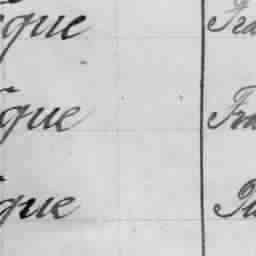 que Fra
que Fra
que